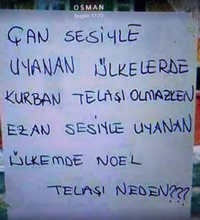 OSMAN
Bugün 17:25
ÇAN SESİYLE
UYANAN ÜLKELERDE
KURBAN TELAŞI OLMAZKEN
EZAN SESİYLE UYANAN
ÜLKEMDE NOEL
TELAŞI NEDEN???